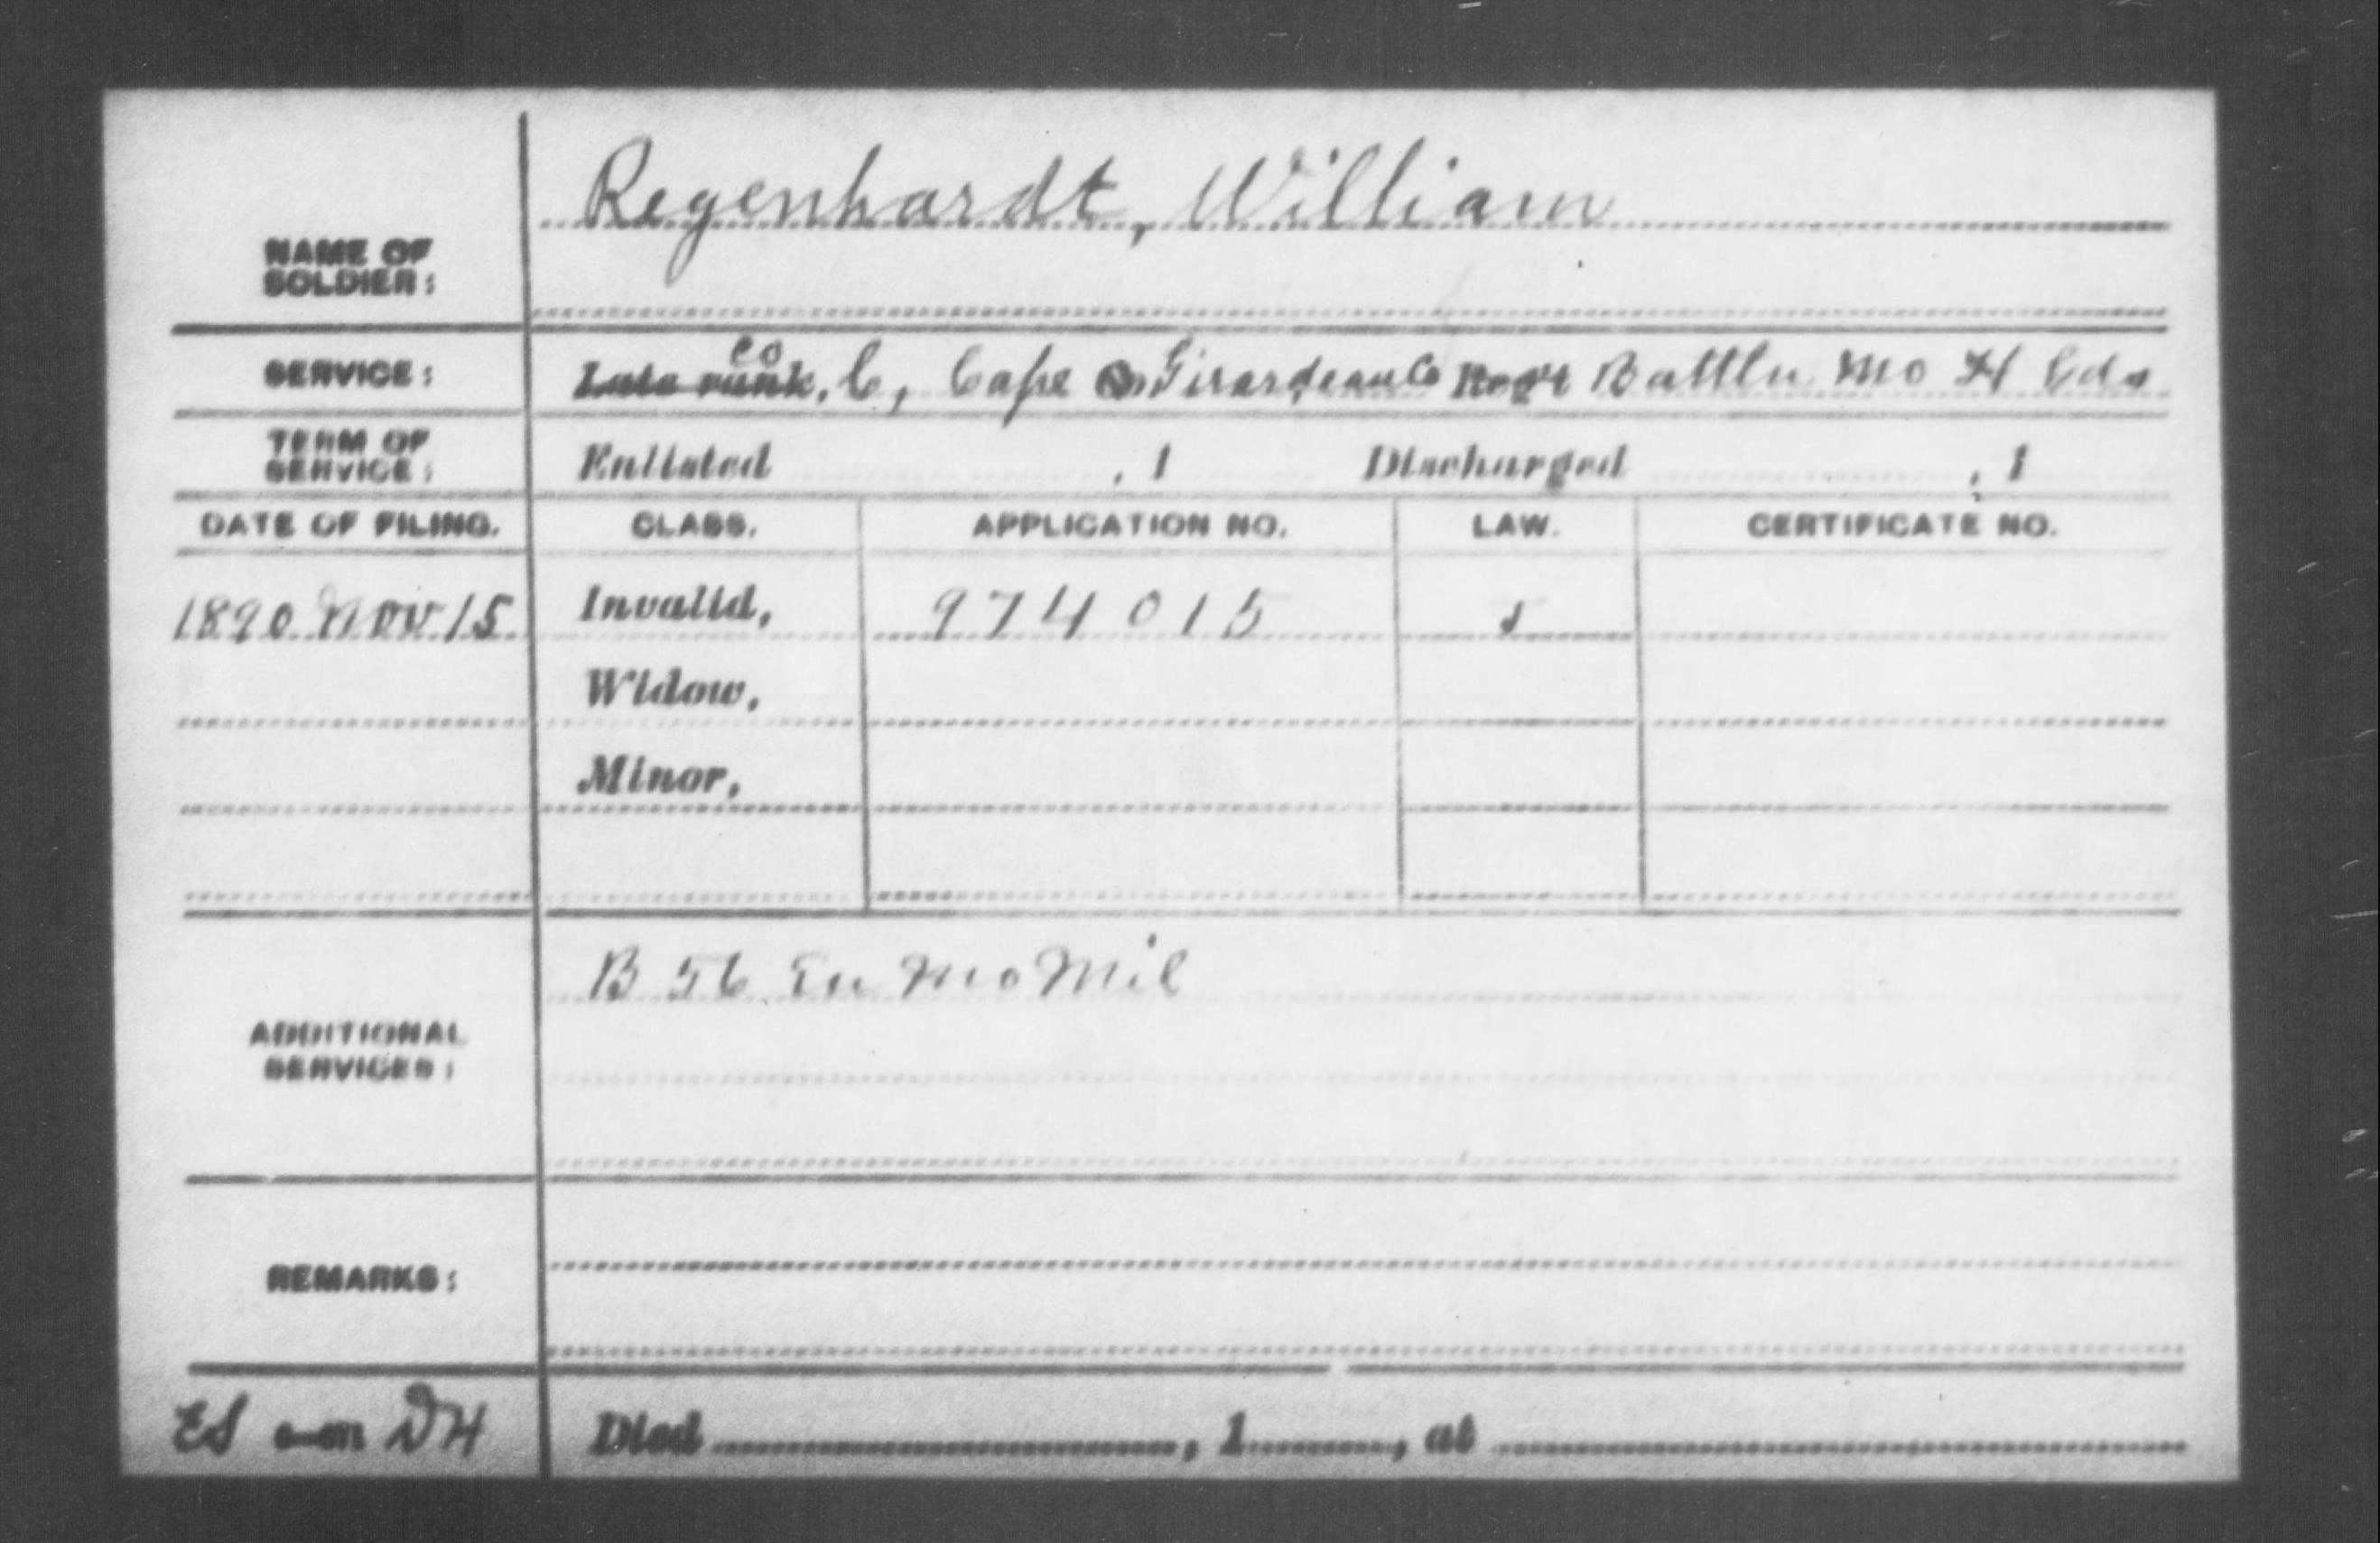 Regenhardt, William
NAME OF
SOLDIER:
SERVICE: Late rank, Co C, Cape Girardeau Co Reg't Battln Mo H Gds
TERM OF
SERVICE: Enlisted , 1 Discharged , 1
DATE OF FILING. CLASS. APPLICATION NO. LAW. CERTIFICATE NO.
1890 Nov 15 Invalid, 974015
Widow,
Minor,
B 56 En Mo Mil
ADDITIONAL
SERVICES:
REMARKS:
Died , 1 , at